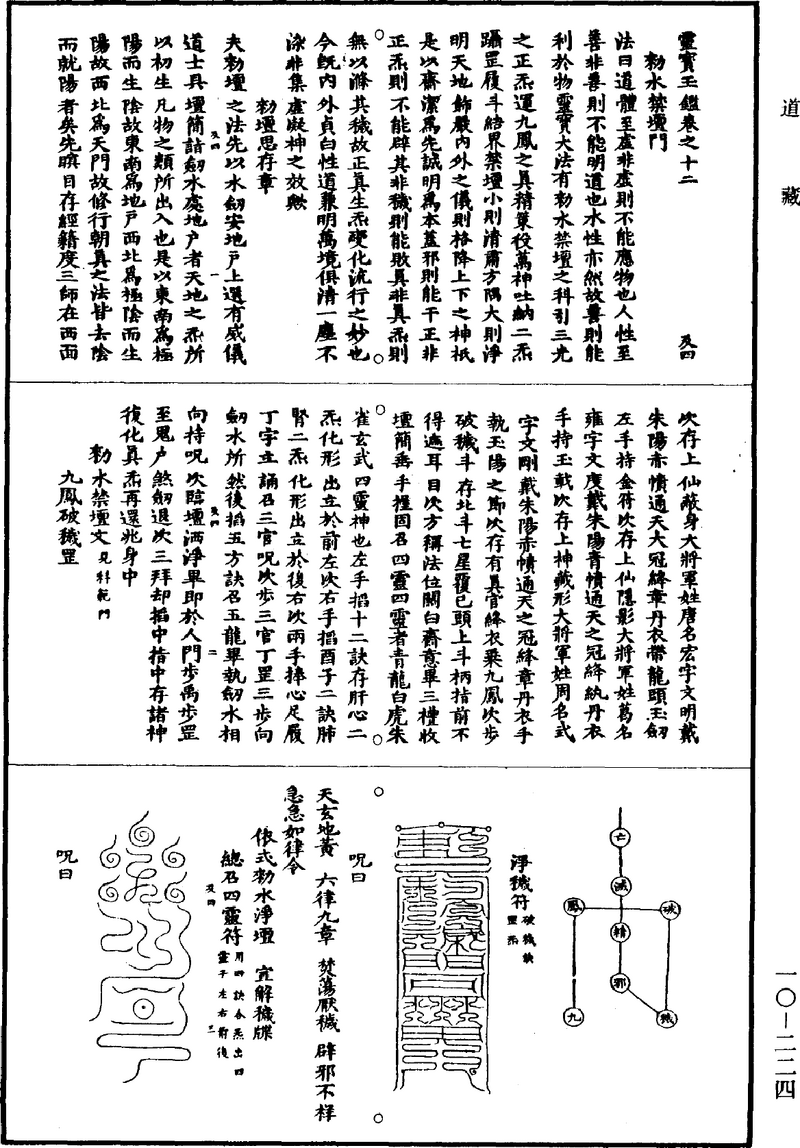 道藏
靈寶玉鑑卷之十二
及四
勑水禁壇門
法曰道體至虛非虛則不能應物也人性至
善非善則不能明道也水性亦然故善則能
利於物靈寶大法有勑水禁壇之科引三光
之正炁運九鳳之真精策役萬神吐納二炁
躡罡履斗結界禁壇小則清肅方隅大則淨
明天地飾嚴內外之儀則格降上下之神祇
是以齋潔為先誠明為本蓋邪則能干正非
正炁則不能辟其非穢則能敗真非真炁則
無以滌其穢故正真生炁變化流行之妙也
今既內外貞白性道兼明萬境俱清一塵不
染非集虛凝神之效歟
勑壇思存章
夫勑壇之法先以水劒安地戶上還有威儀
道士具壇簡詣劒水處地戶者天地之炁所
以初生凡物之類所出入也是以東南為極
陽而生陰故東南為地戶西北為極陰而生
陽故西北為天門故修行朝真之法皆去陰
而就陽者矣先瞑目存經籍度三師在西面
及四
一
次存上仙蔽身大將軍姓唐名宏字文明戴
朱陽赤幘通天大冠絳章丹衣帶龍頭玉劒
左手持金符次存上仙隱影大將軍姓葛名
雍字文度戴朱陽青幘通天之冠絳紈丹衣
手持玉戟次存上神藏形大將軍姓周名式
字文剛戴朱陽赤幘通天之冠絳章丹衣手
執玉陽之節次存有真官絳衣乘九鳳次步
破穢斗存北斗七星覆己頭上斗柄指前不
得遮耳目次方稱法位關白齋意畢三禮收
壇簡垂手揑固召四靈四靈者青龍白虎朱
雀玄武四靈神也左手搯十二訣存肝心二
炁化形出立於前左次右手搯酉子二訣肺
腎二炁化形出立於後右次兩手捧心足履
丁字立誦召三官呪次步三官丁罡三步向
劒水所然後搯五方訣召五龍畢執劒水相
向持呪次臨壇洒淨畢即於人門步禹步罡
至鬼戶煞劒退次三拜却搯中指中存諸神
復化真炁再還兆身中
及四
二
勑水禁壇文見科範門
九鳳破穢罡
亡
滅
鳳
破
精
邪
九
穢
淨穢符破穢訣
靈炁
呪曰
天玄地黃 六律九章 焚蕩厭穢 辟邪不祥
急急如律令
依式勑水淨壇 宣解穢牒
總召四靈符用四訣令炁出四
靈于左右前後
及四
三
呪曰
一〇—二二四